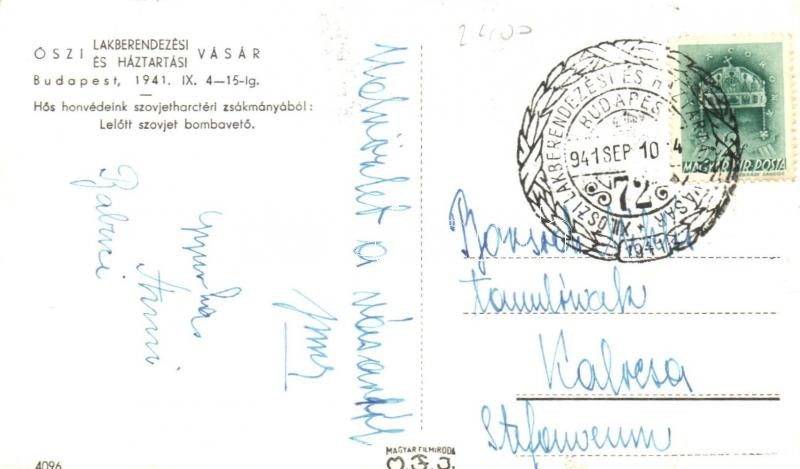 ŐSZI LAKBERENDEZÉSI ÉS HÁZTARTÁSI VÁSÁR
Budapest, 1941. IX. 4—15-ig.
Hős honvédeink szovjetharctéri zsákmányából:
Lelőtt szovjet bombavető.
a vásárról
Gyurka
Anni
Babuci
2400
ŐSZI LAKBERENDEZÉSI ÉS HÁZTARTÁSI VÁSÁR
BUDAPEST
941 SEP 10
72
1941
MAGYAR KIR. POSTA
tanulónak
Kalocsa
Stefaneum
4096
MAGYAR FILMIRODA